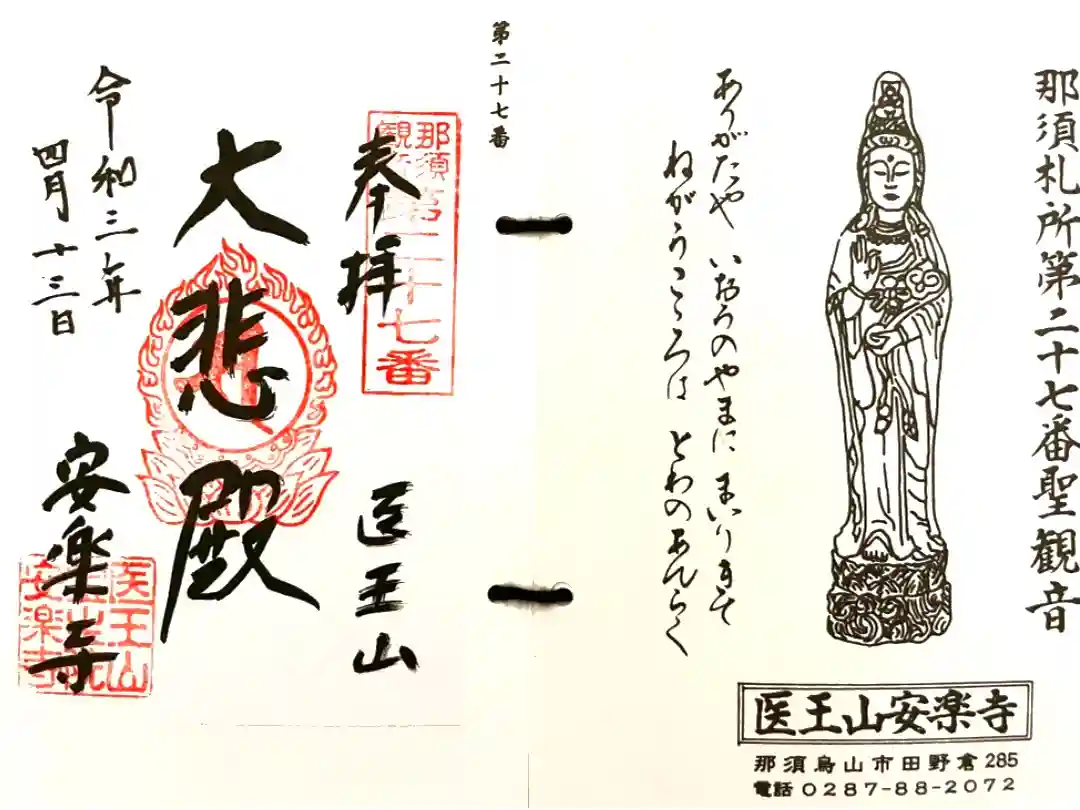 那須札所第二十七番聖観音
ありがたや いおうのやまに まいりきて
ねがうこころは とわのあんらく
医王山安楽寺
那須烏山市田野倉285
電話 0287-88-2072
第二十七番
奉拝
医王山
那須
観所
第二十七番
大悲殿
令和三年
四月十三日
安楽寺
医王山
安楽寺